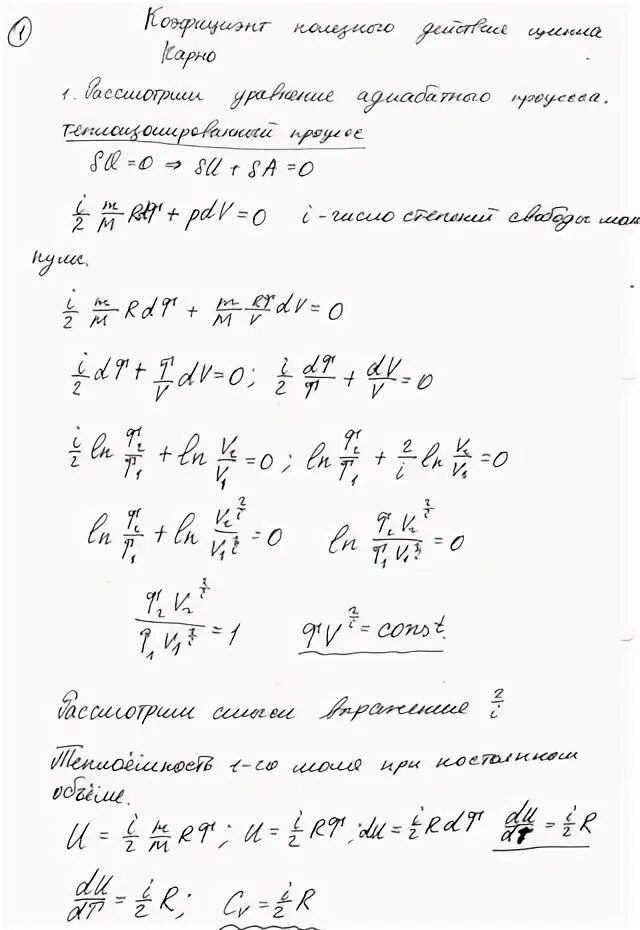 1
Коэффициент полезного действие цикла
Карно
1. Рассмотрим уравнение адиабатного процесса.
теплоизолированный процесс
δQ = 0 ⇒ δU + δA = 0
i/2 m/M RdT + pdV = 0 i - число степений свободы моле
кулы.
i/2 m/M R dT + m/M RT/V dV = 0
i/2 dT + T/V dV = 0; i/2 dT/T + dV/V = 0
i/2 ln T₂/T₁ + ln V₂/V₁ = 0; ln T₂/T₁ + 2/i ln V₂/V₁ = 0
ln T₂/T₁ + ln V₂^(2/i)/V₁^(2/i) = 0 ln T₂V₂^(2/i)/T₁V₁^(2/i) = 0
T₂V₂^(2/i)/T₁V₁^(2/i) = 1 TV^(2/i) = const.
Рассмотрим смысл выражение 2/i
Теплоёмкость 1-го моля при постоянном
объёме.
U = i/2 m/M RT; U = i/2 RT; dU = i/2 R dT dU/dT = i/2 R
dU/dT = i/2 R; Cv = i/2 R